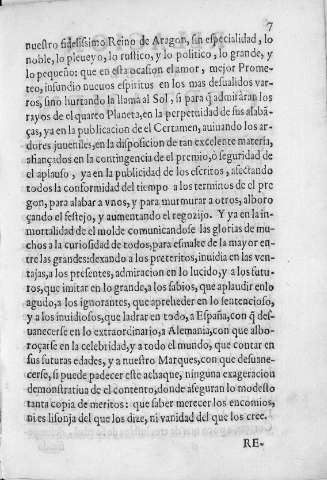 7
nuestro fidelissimo Reino de Aragon, sin especialidad, lo
noble, lo pleueyo, lo rustico, y lo politico, lo grande, y
lo pequeño: que en esta ocasion el amor, mejor Prome-
teo, infundio nueuos espiritus en los mas desualidos var-
ros, sino hurtando la llama al Sol, si para q̃ admiràran los
rayos de el quarto Planeta, en la perpetuidad de sus alabã-
ças, ya en la publicacion de el Certamen, auiuando los ar-
dores juueniles, en la disposicion de tan excelente materia,
afiançados en la contingencia de el premio, ò seguridad de
el aplauso, ya en la publicidad de los escritos, afectando
todos la conformidad del tiempo a los terminos de el pre
gon, para alabar a vnos, y para murmurar a otros, alboro
çando el festejo, y aumentando el regozijo. Y ya en la in-
mortalidad de el molde comunicandose las glorias de mu-
chos a la curiosidad de todos, para esmalte de la mayor en-
tre las grandes: dexando a los preteritos, inuidia en las ven-
tajas, a los presentes, admiracion en lo lucido, y a los futu-
ros, que imitar en lo grande, a los sabios, que aplaudir en lo
agudo, a los ignorantes, que apreheder en lo sentencioso,
y a los inuidiosos, que ladrar en todo, a España, con q̃ des-
uanecerse en lo extraordinario, a Alemania, con que albo-
roçarse en la celebridad, y a todo el mundo, que contar en
sus futuras edades, y a nuestro Marques, con que desuane-
cerse, si puede padecer este achaque, ninguna exageracion
demonstratiua de el contento, donde aseguran lo modesto
tanta copia de meritos: que saber merecer los encomios,
ni es lisonja del que los dize, ni vanidad del que los cree.
RE-